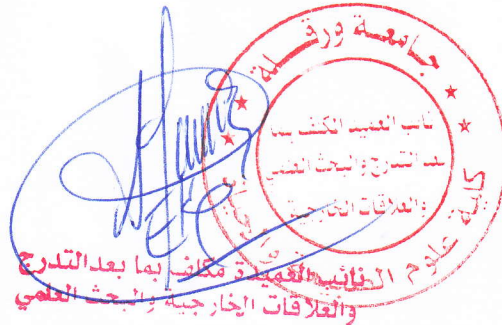 جامعة ورقلة
نائب العميد المكلف بما
بعد التدرج والبحث العلمي
والعلاقات الخارجية
كلية علوم
نائب العميد مكلف بما بعد التدرج
والعلاقات الخارجية والبحث العلمي